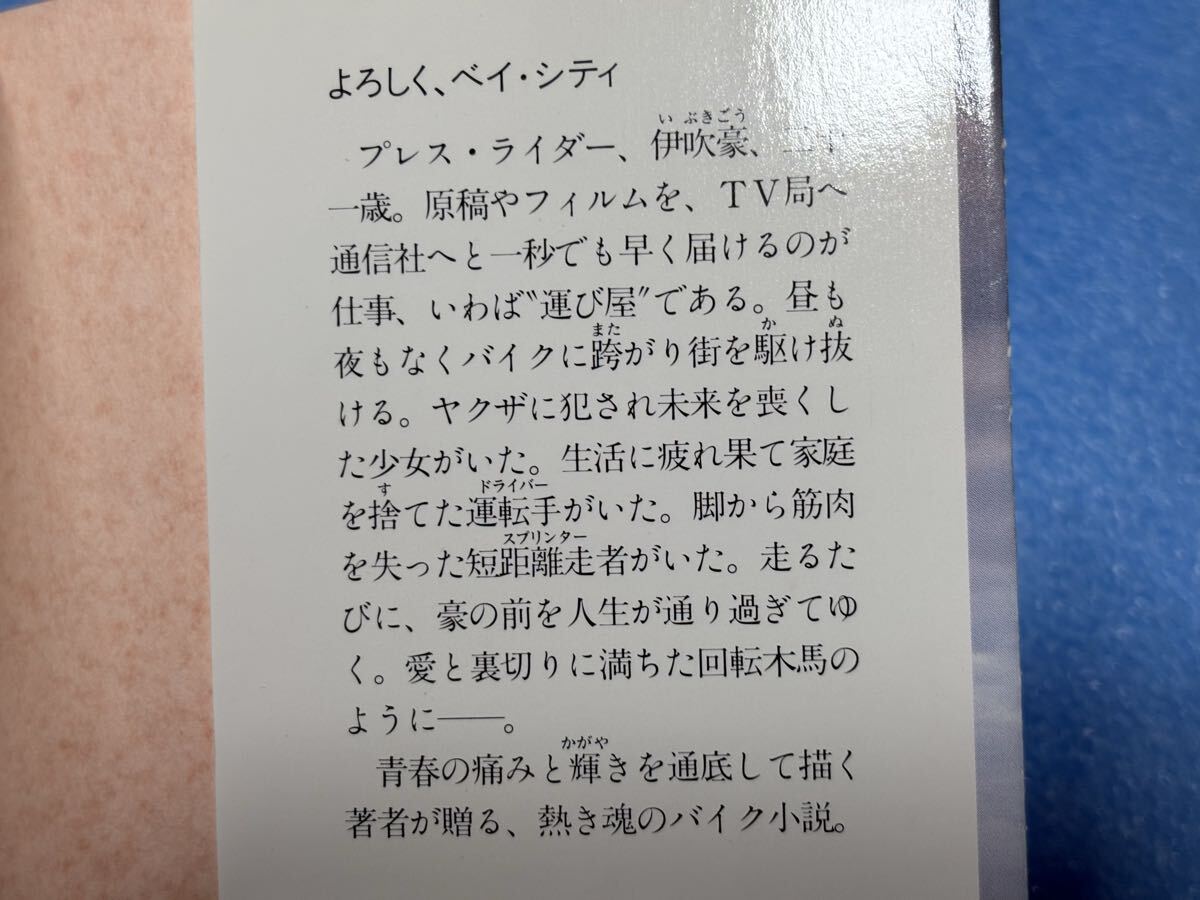 よろしく、ベイ・シティ
プレス・ライダー、伊吹豪、二十
いぶきごう
一歳。原稿やフィルムを、TV局へ
通信社へと一秒でも早く届けるのが
仕事、いわば〝運び屋〟である。昼も
夜もなくバイクに跨がり街を駆け抜
また
か
ぬ
ける。ヤクザに犯され未来を喪くし
た少女がいた。生活に疲れ果て家庭
を捨てた運転手がいた。脚から筋肉
す
ドライバー
を失った短距離走者がいた。走るた
スプリンター
びに、豪の前を人生が通り過ぎてゆ
く。愛と裏切りに満ちた回転木馬の
ように——。
青春の痛みと輝きを通底して描く
かがや
著者が贈る、熱き魂のバイク小説。